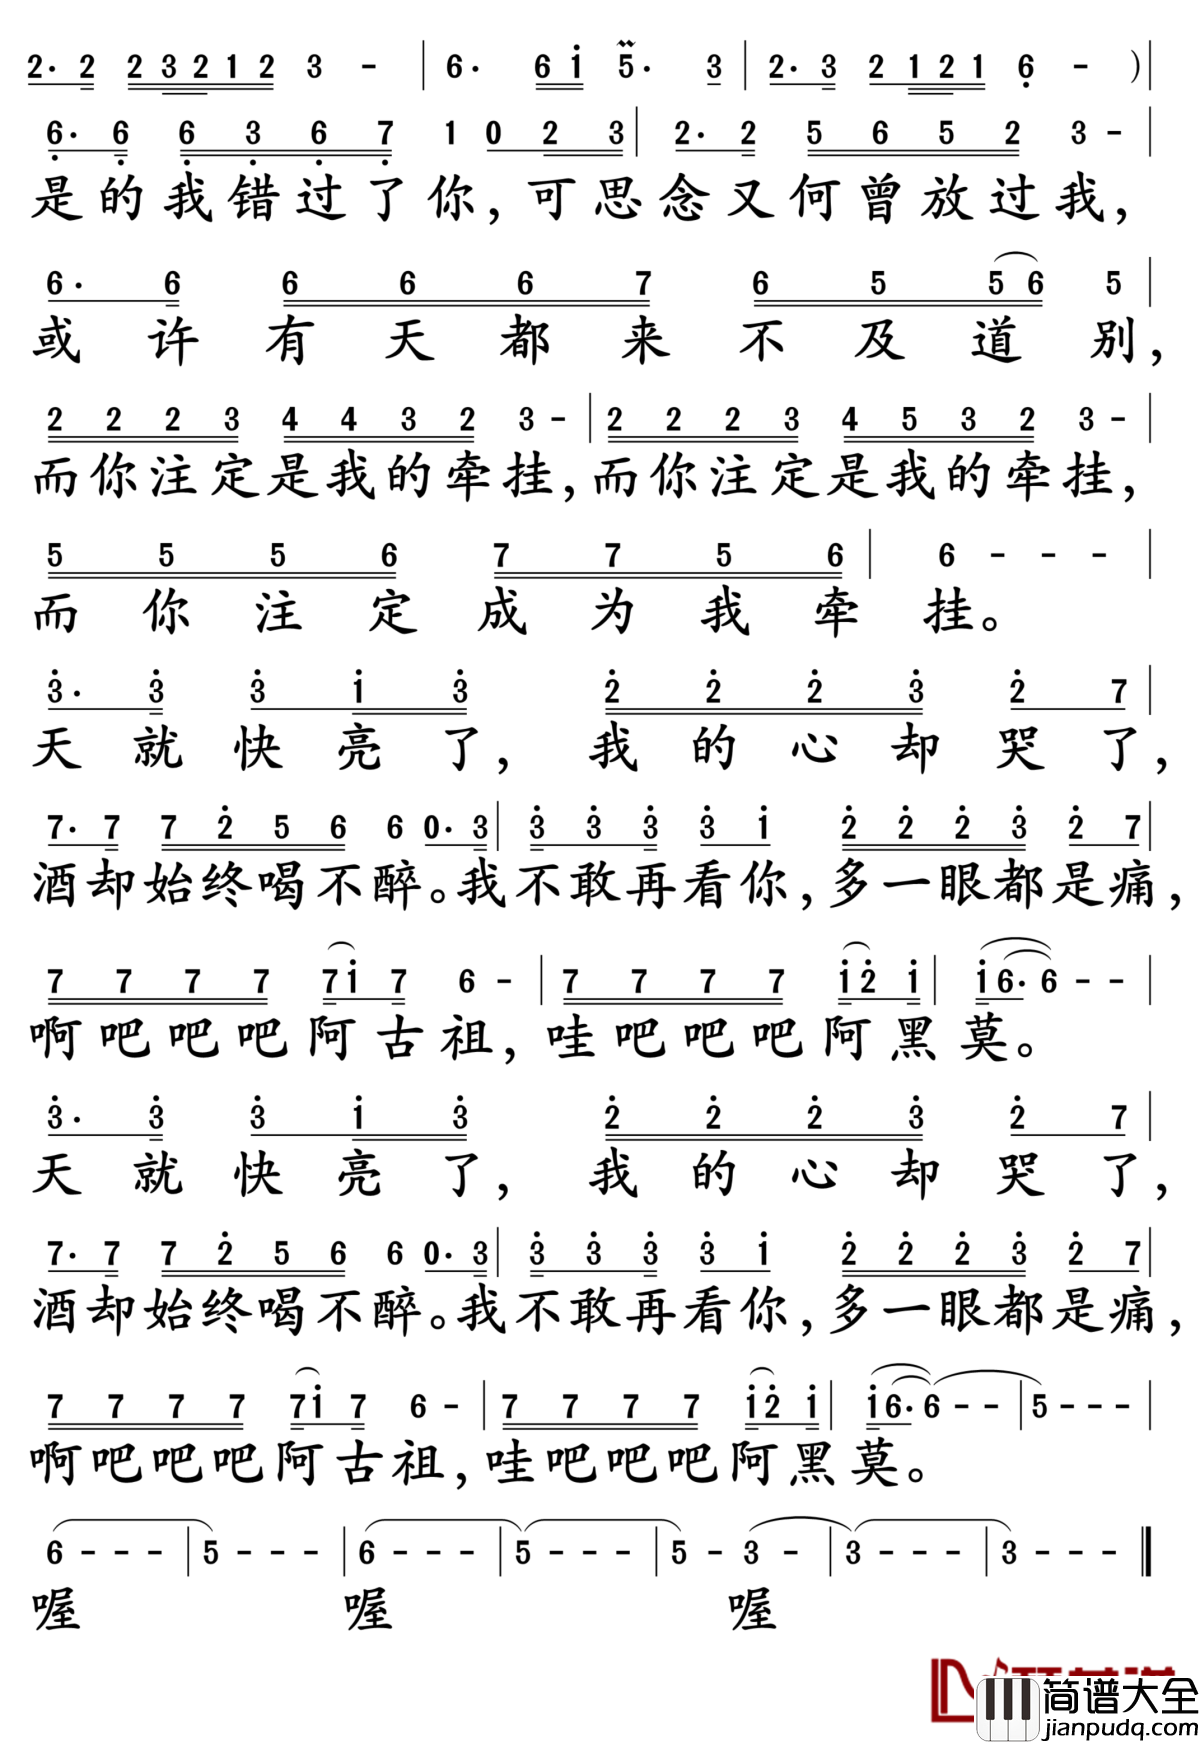 2· 2 2 3 2 1 2 3 - | 6· 6 i 5· 3 | 2· 3 2 1 2 1 6 - )|
6· 6 6 3 6 7 1 0 2 3 | 2· 2 5 6 5 2 3 - |
是的我错过了你,可思念又何曾放过我,
6· 6 6 6 6 7 6 5 5 6 5 |
或许有天都来不及道别,
2 2 2 3 4 4 3 2 3 - | 2 2 2 3 4 5 3 2 3 - |
而你注定是我的牵挂,而你注定是我的牵挂,
5 5 5 6 7 7 5 6 | 6 - - - |
而你注定成为我牵挂。
3· 3 3 1 3 2 2 2 3 2 7 |
天就快亮了,我的心却哭了,
7· 7 7 2 5 6 6 0· 3 | 3 3 3 3 i 2 2 2 3 2 7 |
酒却始终喝不醉。我不敢再看你,多一眼都是痛,
7 7 7 7 7 i 7 6 - | 7 7 7 7 i 2 i | i 6· 6 - - |
啊吧吧吧阿古祖,哇吧吧吧阿黑莫。
3· 3 3 1 3 2 2 2 3 2 7 |
天就快亮了,我的心却哭了,
7· 7 7 2 5 6 6 0· 3 | 3 3 3 3 i 2 2 2 3 2 7 |
酒却始终喝不醉。我不敢再看你,多一眼都是痛,
7 7 7 7 7 i 7 6 - | 7 7 7 7 i 2 i | i 6· 6 - - | 5 - - - |
啊吧吧吧阿古祖,哇吧吧吧阿黑莫。
6 - - - | 5 - - - | 6 - - - | 5 - - - | 5 - 3 - | 3 - - - | 3 - - - ‖
喔 喔 喔
简谱大全
jianpudq.com